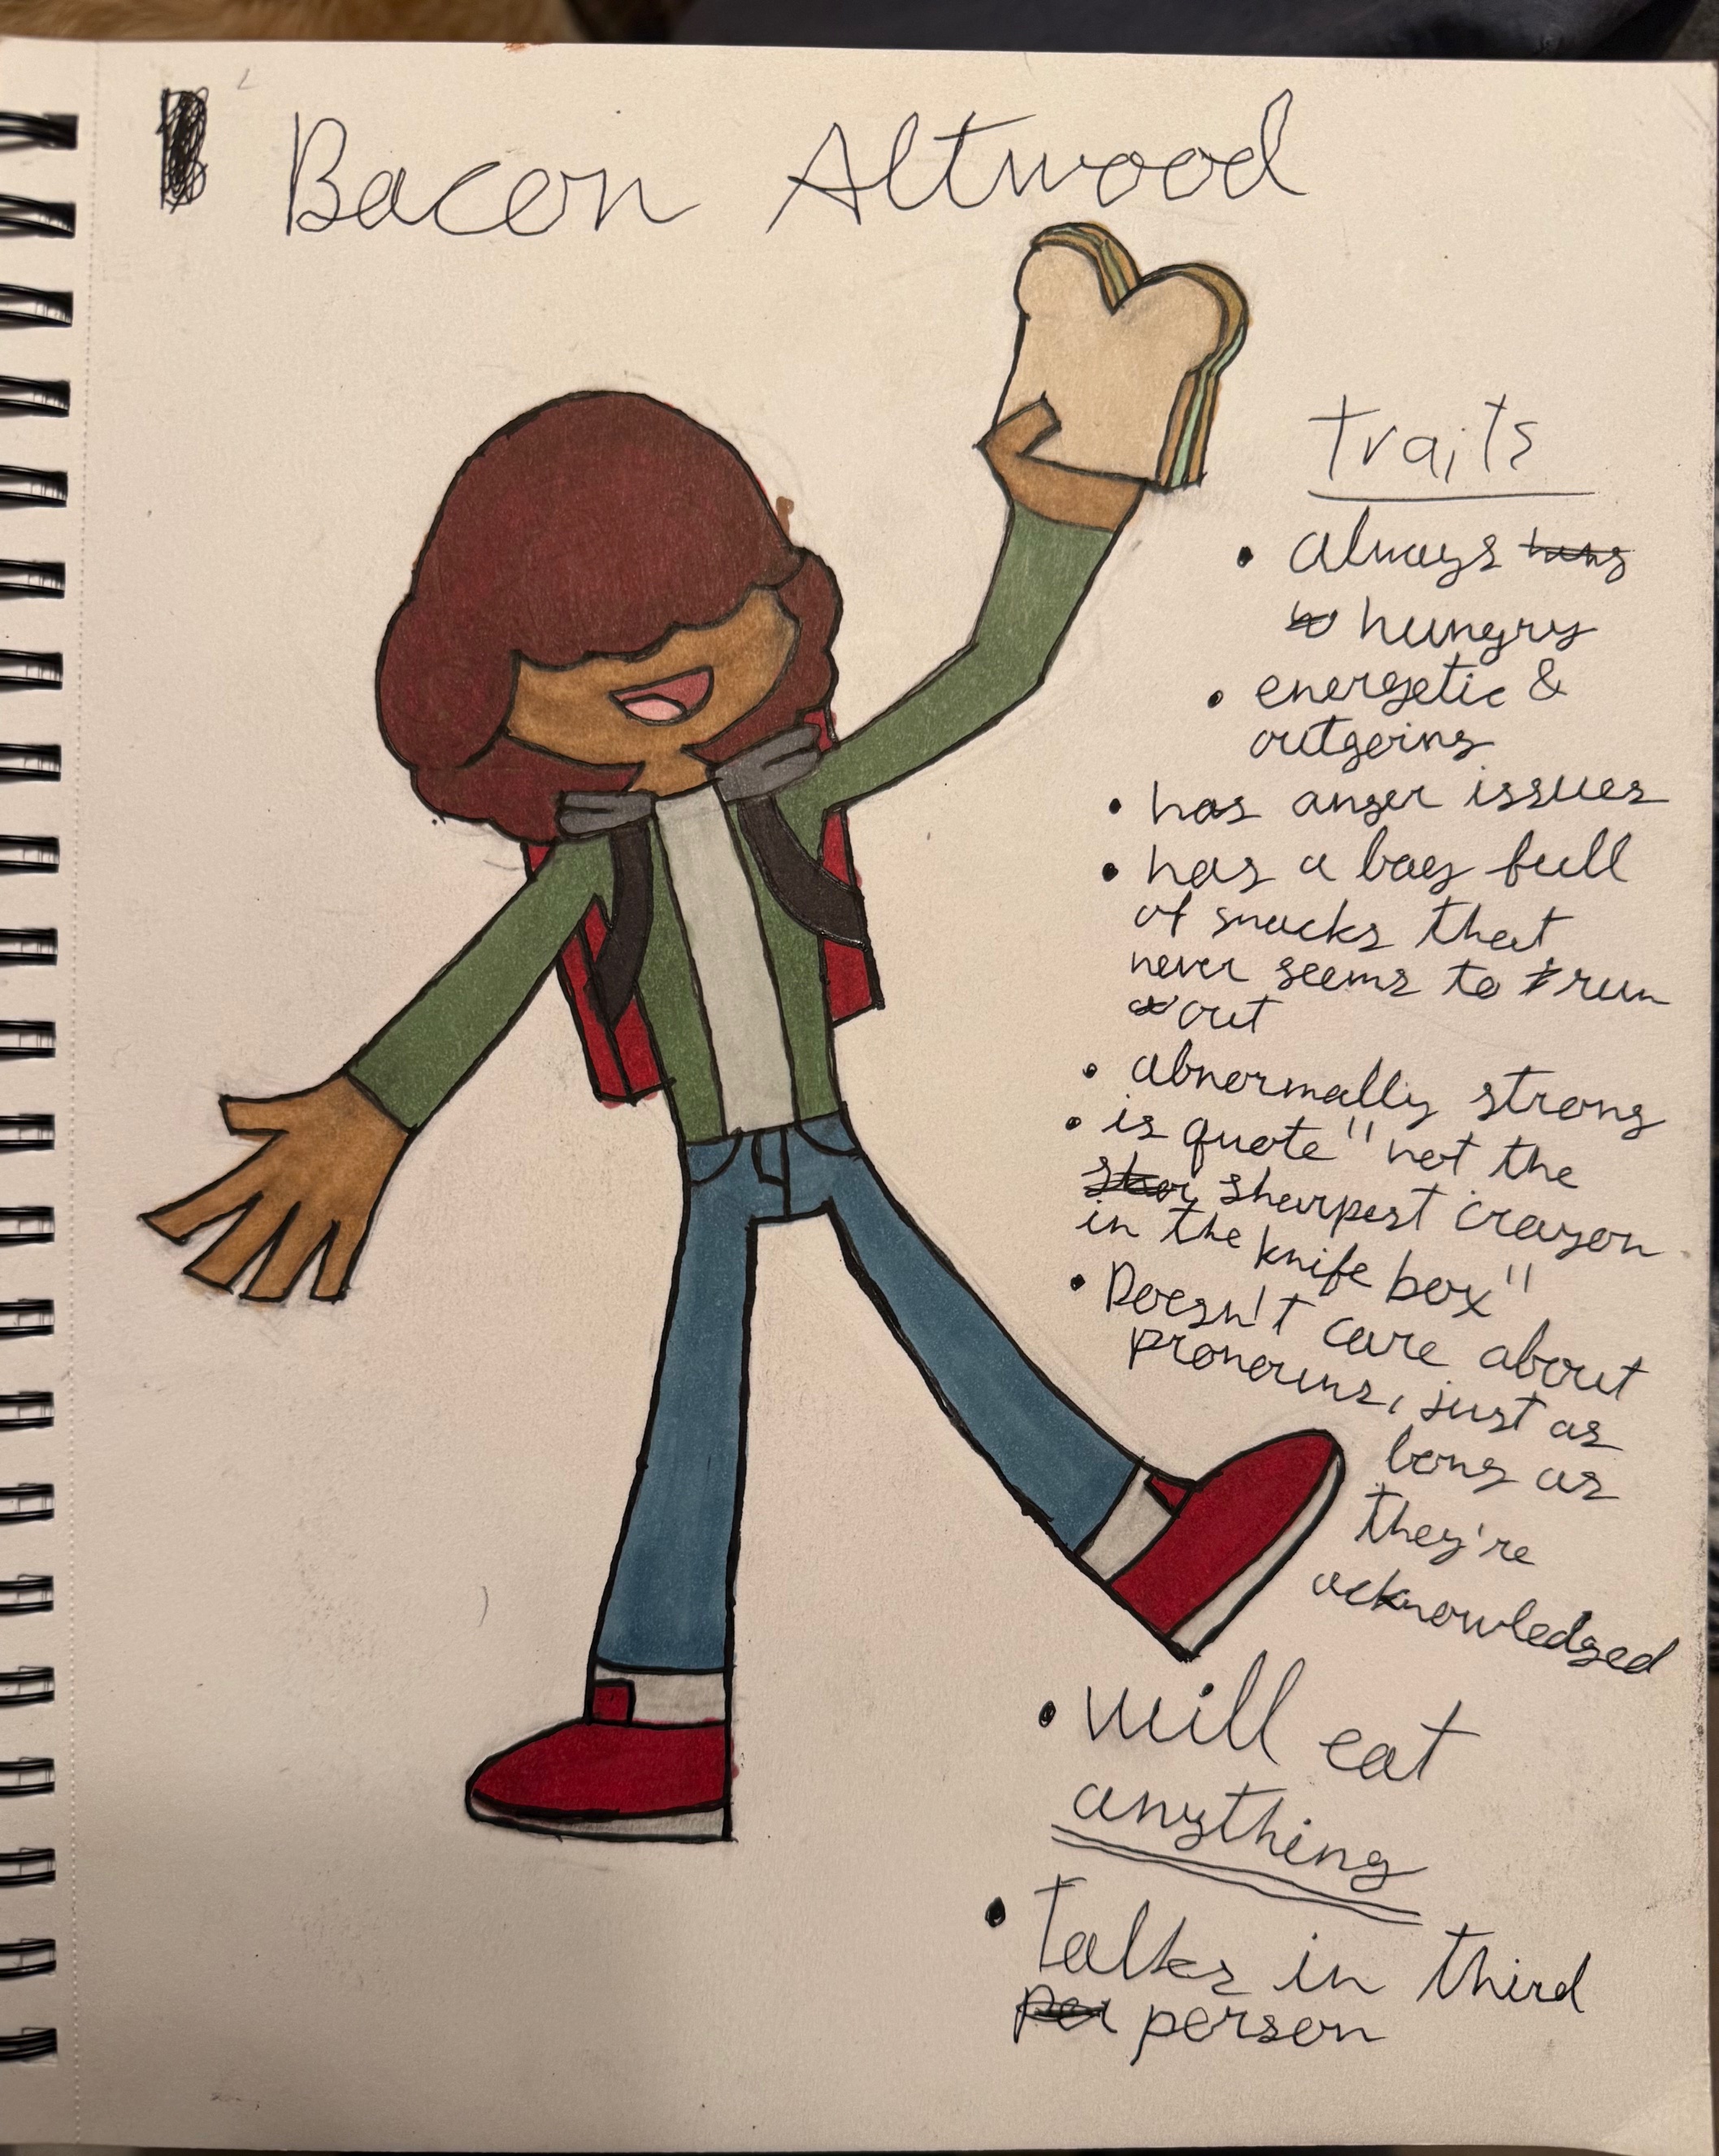 Bacon Altwood
traits
• always
hungry
• energetic &
outgoing
• has anger issues
• has a bag full
of snacks that
never seems to run
out
• abnormally strong
• is quote "not the
sharpest crayon
in the knife box"
• Doesn't care about
pronouns, just as
long as
they're
acknowledged
• will eat
anything
• Talks in third
person